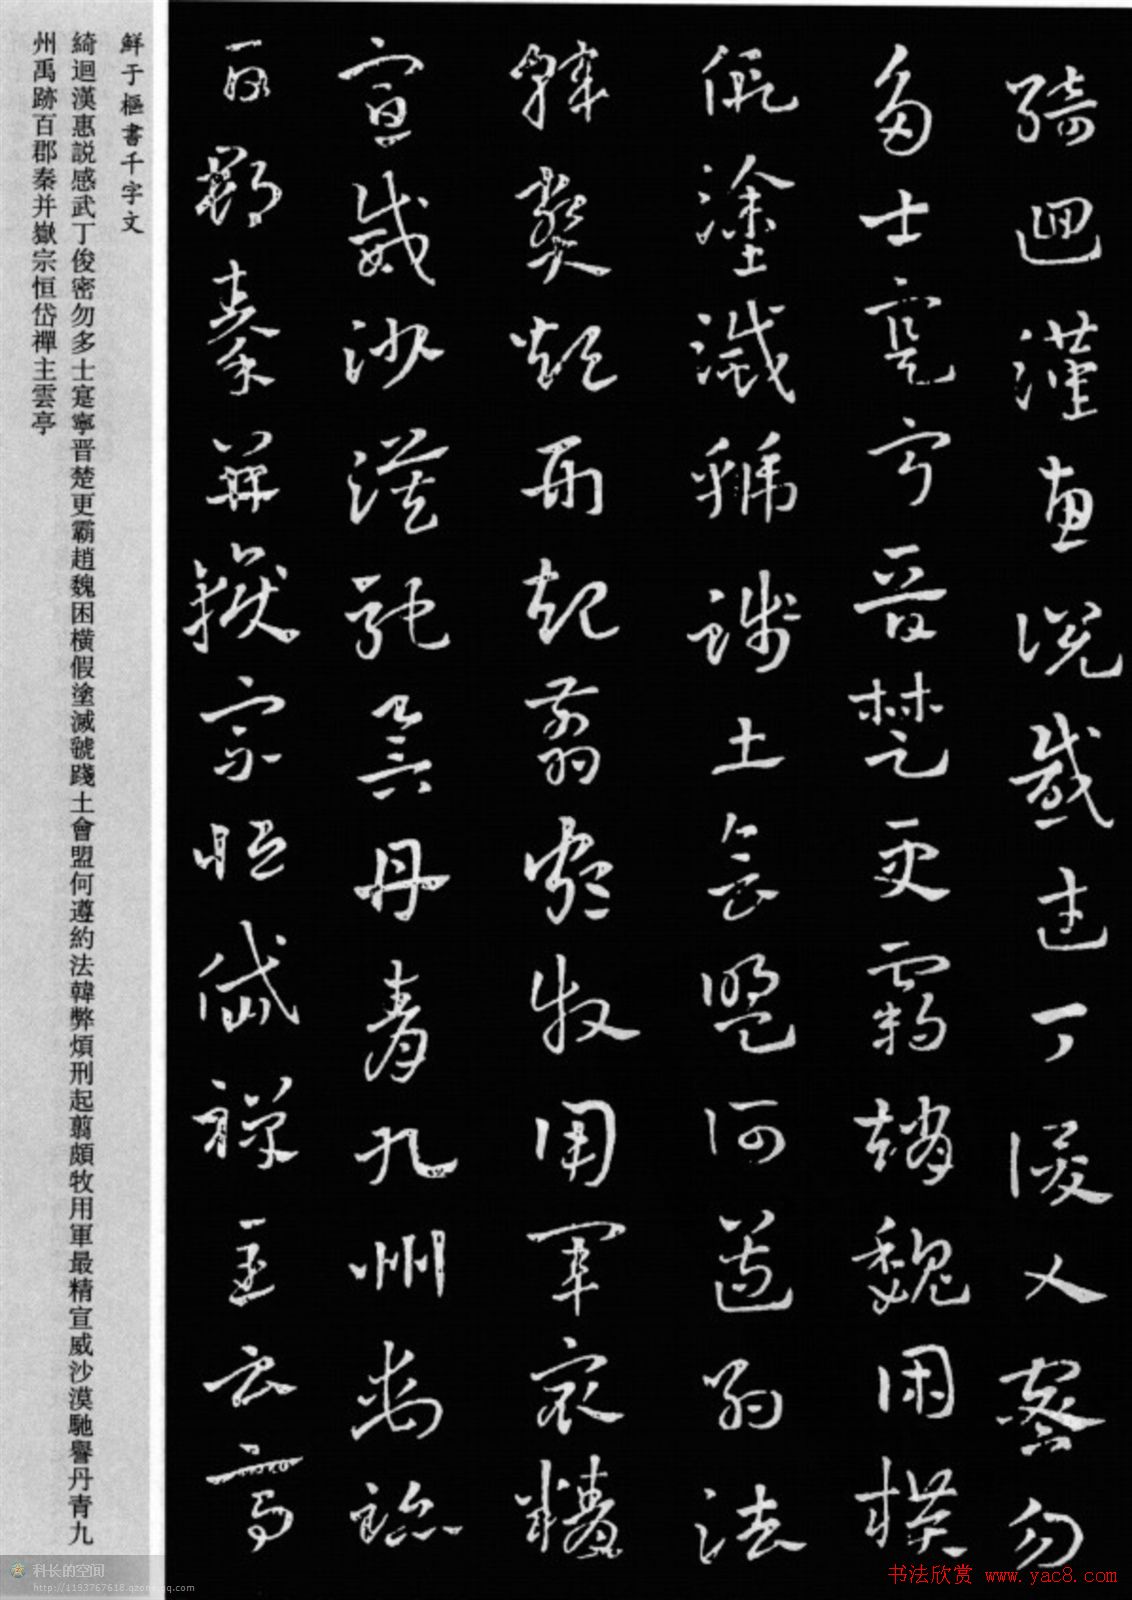 綺迴漢惠説感武丁俊乂密勿
多士寔寧晋楚更霸趙魏困橫
假塗滅虢踐土會盟何遵約法
韓弊煩刑起翦頗牧用軍最精
宣威沙漠馳譽丹青九州禹跡
百郡秦并嶽宗恒岱禪主云亭
鮮于樞書千字文
綺迴漢惠説感武丁俊密勿多士寔寧晋楚更霸趙魏困橫假塗滅虢踐土會盟何遵約法韓弊煩刑起翦頗牧用軍最精宣威沙漠馳譽丹青九
州禹跡百郡秦并嶽宗恒岱禪主雲亭
科长的空间
http://1193767618.qzone.qq.com
书法欣赏 www.yac8.com